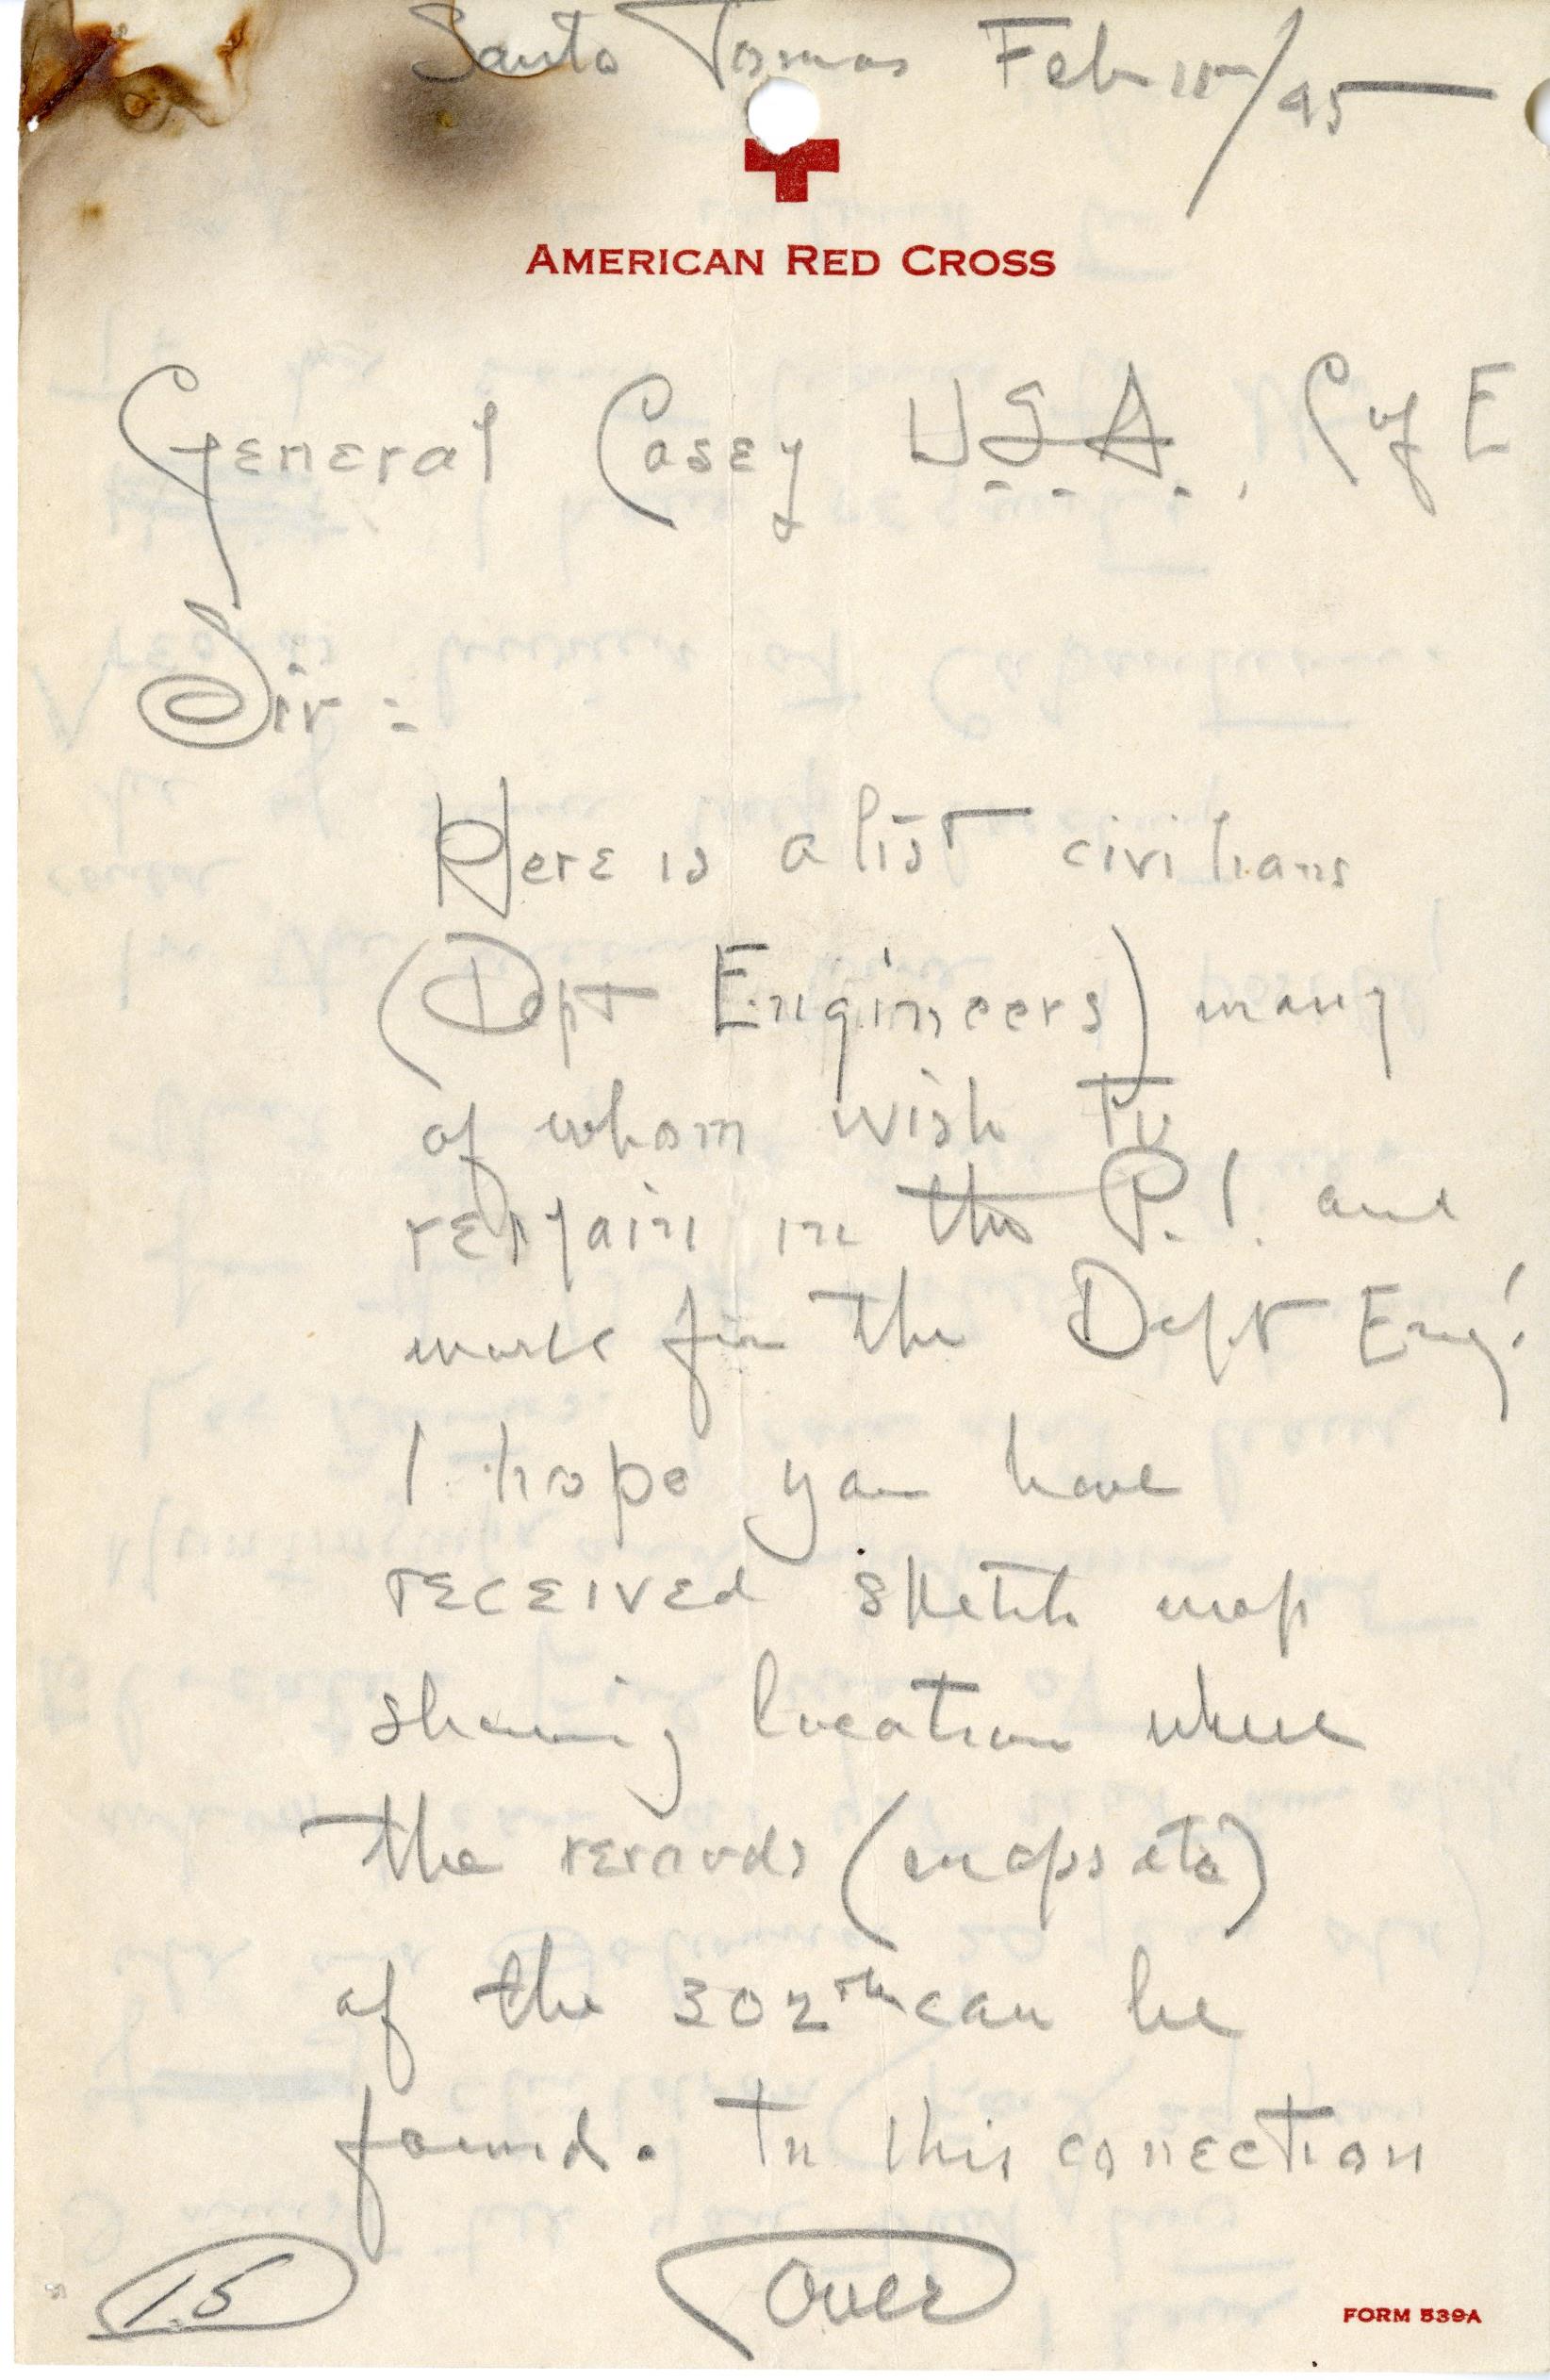 Santo Tomas Feb 15/45
AMERICAN RED CROSS
General Casey U.S.A., C of E
Sir:
Here is a list civilians
(Dept Engineers) many
of whom wish to
remain in the P.I. and
work for the Dept Eng.
I hope you have
received sketch map
showing location where
the records (maps etc)
of the 302nd can be
found. In this conection
15
Over
FORM 539A